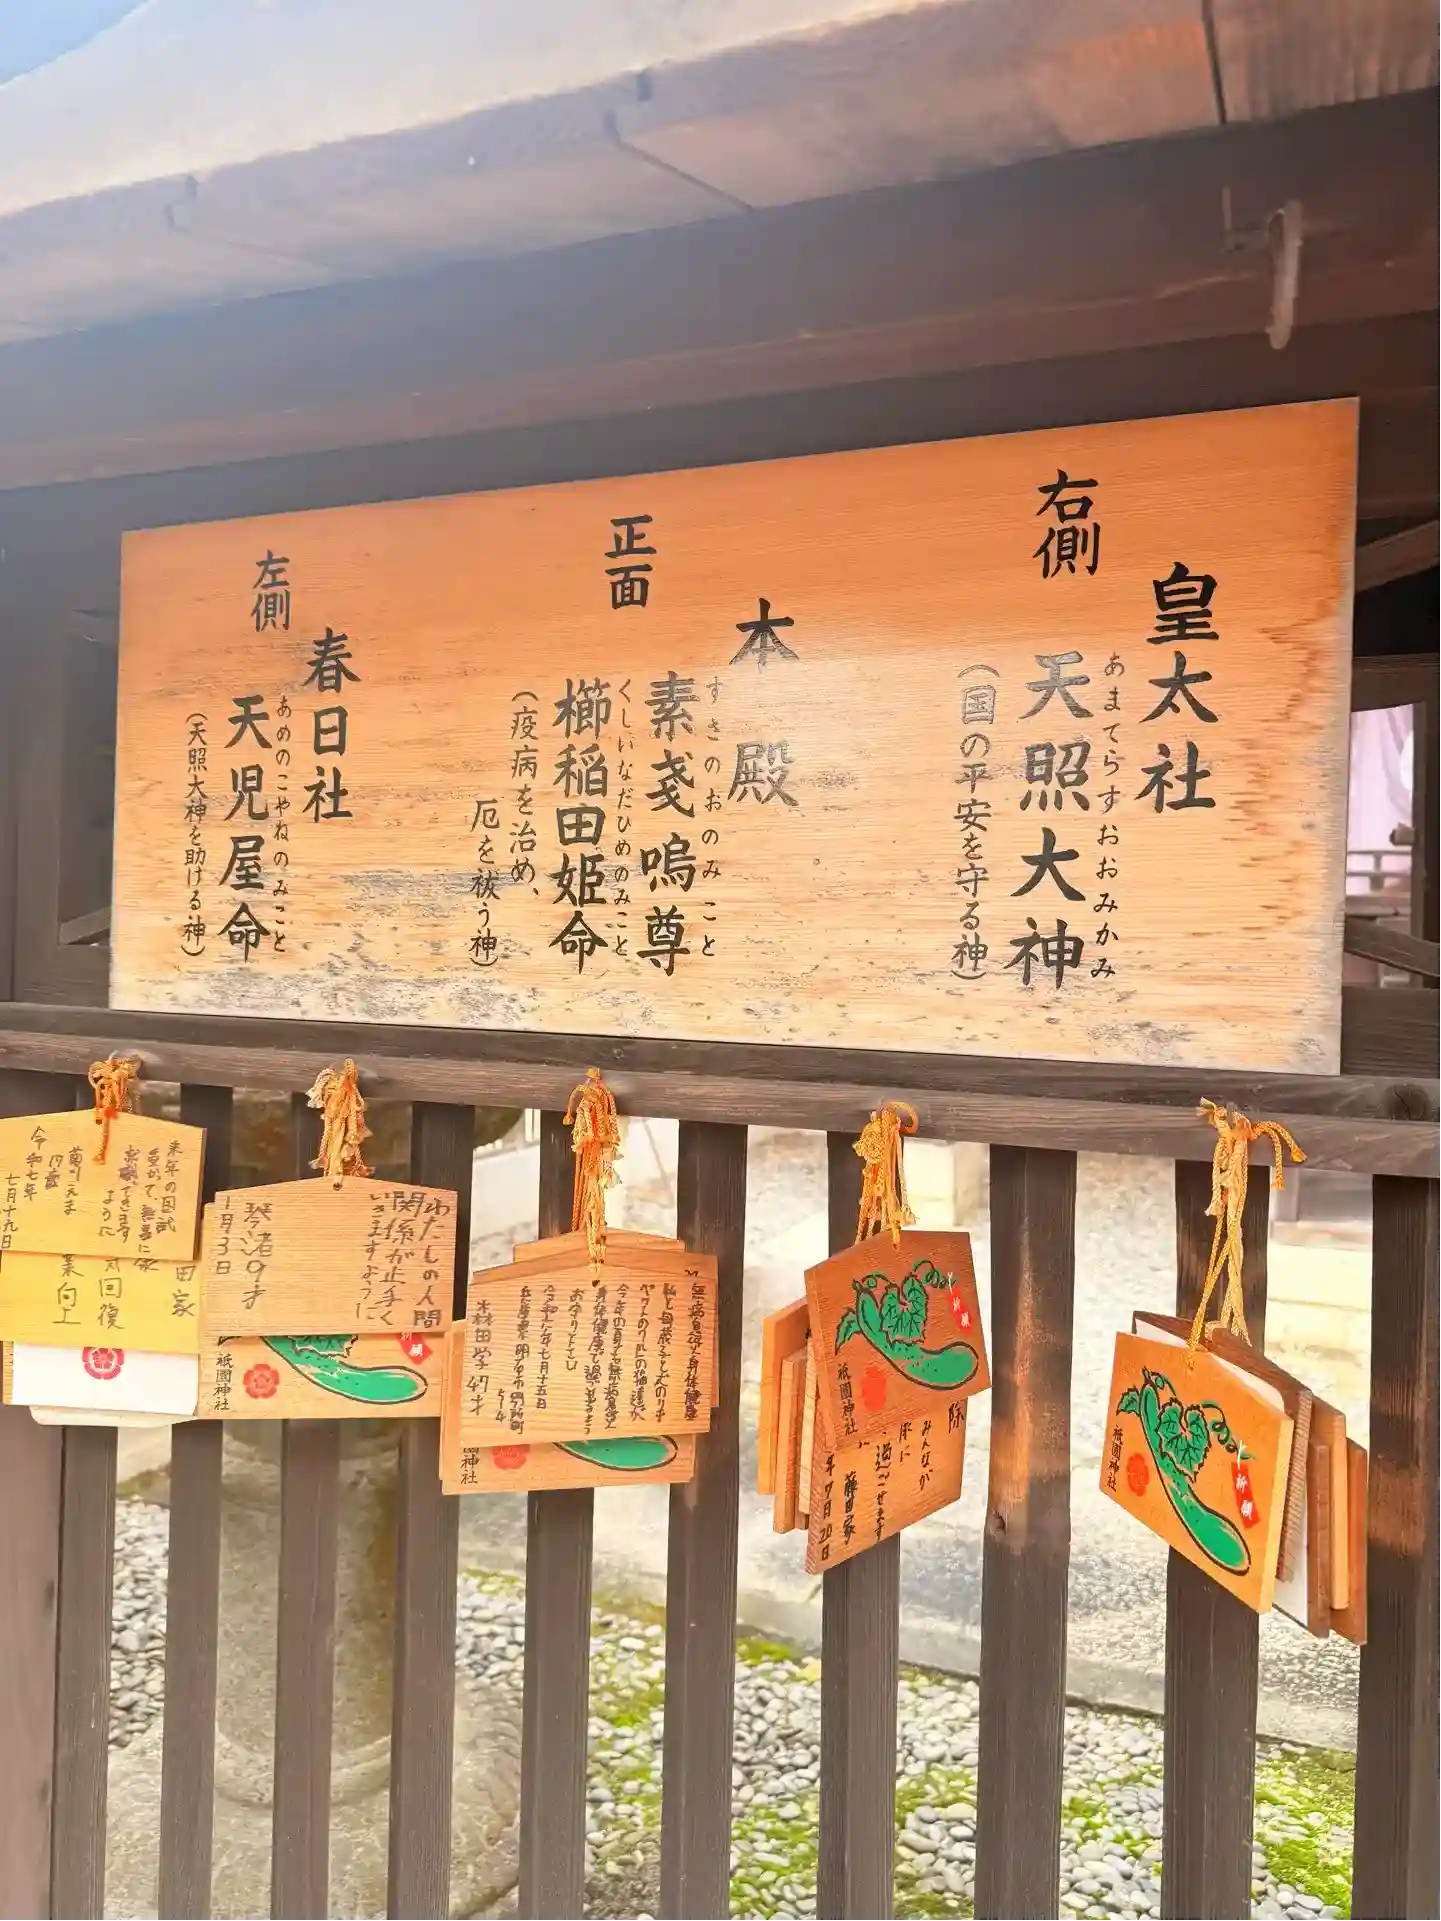 右側
皇太社
あまてらすおおみかみ
天照大神
（国の平安を守る神）
正面
本殿
すさのおのみこと
素戔嗚尊
くしいなだひめのみこと
櫛稲田姫命
（疫病を治め、
厄を祓う神）
左側
春日社
あめのこやねのみこと
天児屋命
（天照大神を助ける神）
来年の国試
ように
令和七年
七月十九日
回復
業向上
田家
わたしの人間
関係が上手く
いきますように
琴渚9才
1月3日
祇園神社
無病息災身体健康
令和七年七月十五日
森田学47才
園神社
祈願
祇園神社
除
みんなが
過ごせます
藤田家
年7月20日
祈願
祇園神社